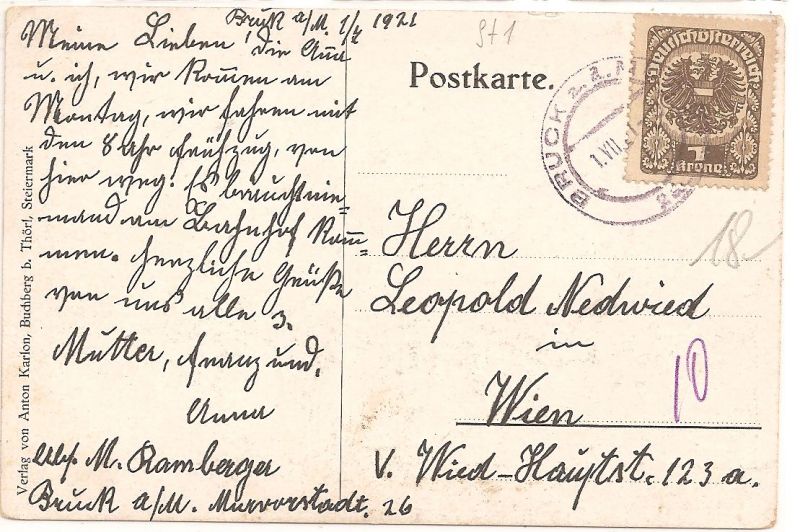 Bruck a/M. 1/7 1921
Meine Lieben, die Anna
u. ich, wir kommen am
Montag, wir fahren mit
den 8 Uhr Frühzug, von
hier weg. Es braucht nie=
mand am Bahnhof kom=
men. Herzliche Grüße
von uns alle 3.
Mutter, Franz und,
Anna
M. Ramberger
Bruck a/M. Murvorstadt. 26
Verlag von Anton Karlon, Buchberg b. Thörl, Steiermark
St 1
Postkarte.
BRUCK a. d. M
1.VII.
Deutschösterreich
1
Krone
18
Herrn
Leopold Nedwied
in
Wien
10
V. Wied-Hauptst. 123 a.